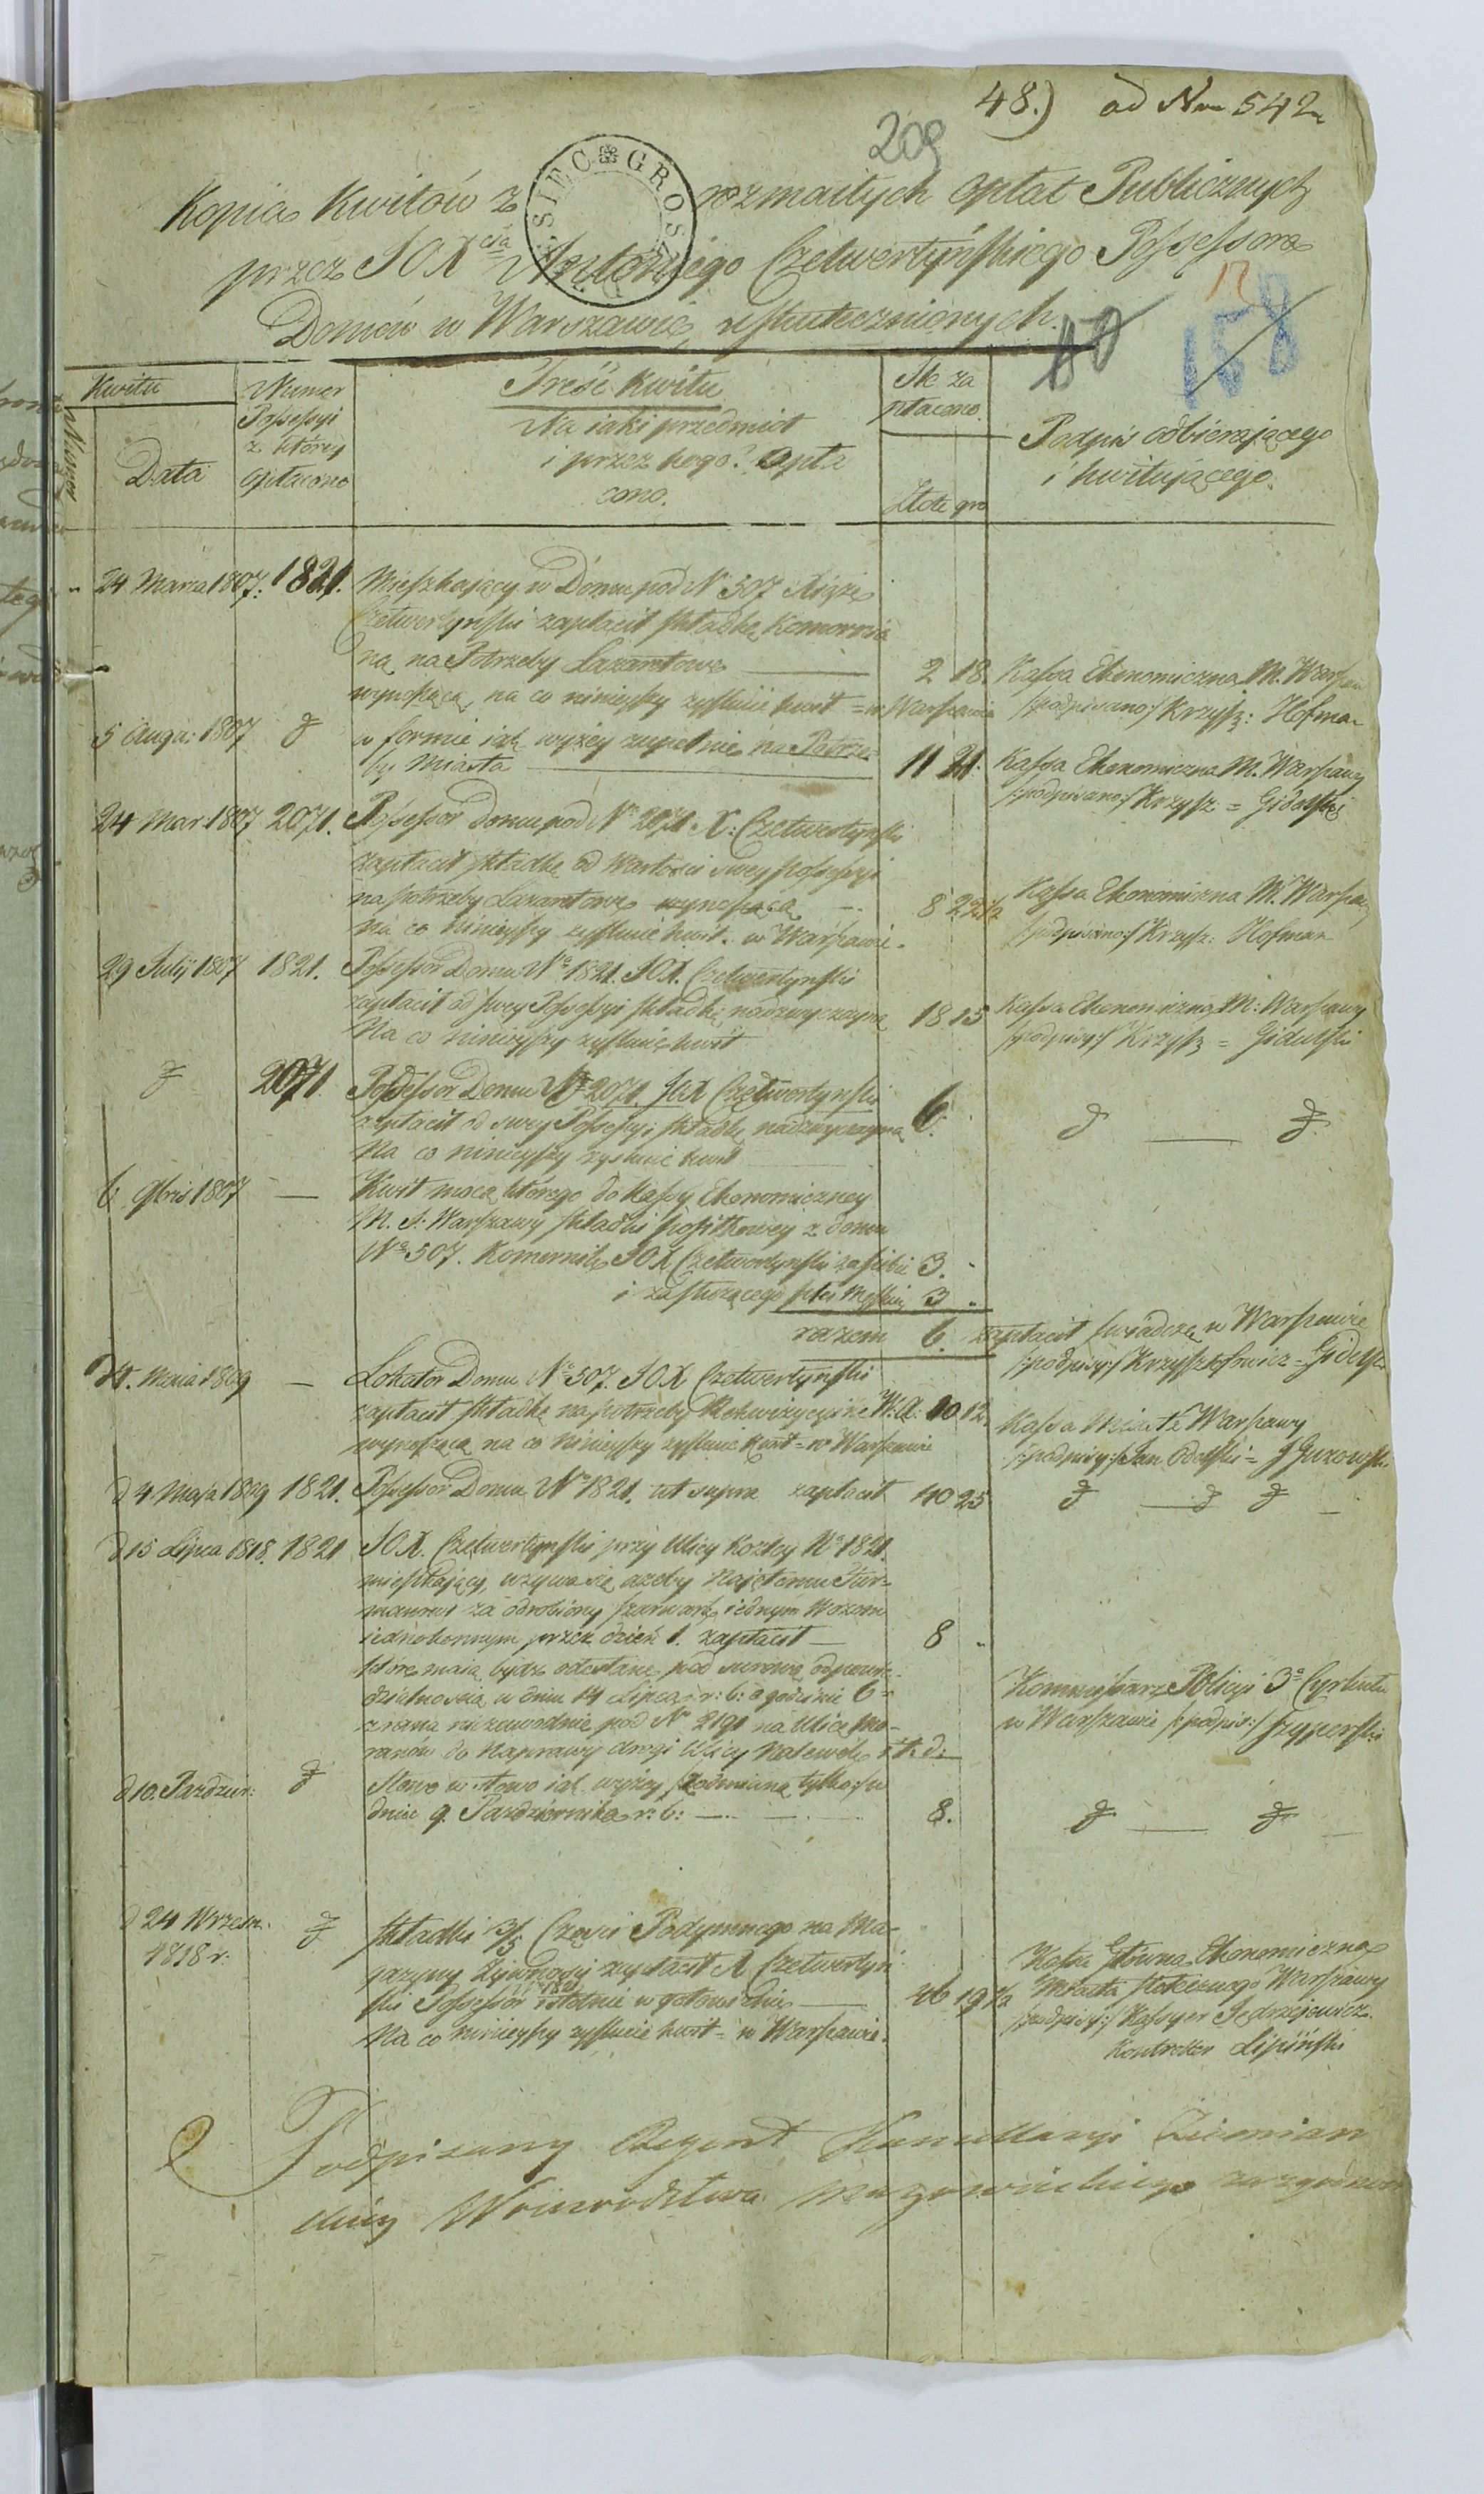 48.) od Nro 542
209
Kopia Kwitów z rozmaitych opłat Publicznych
przez JOXcia Antoniego Czetwertyńskiego Possessora
Domów w Warszawie uskutecznionych.
DZIESIĘC GROSZY
12
158
Kwitu
Numer
Data
Numer
Possessyi
z którey
opłacono
Treść Kwitu
Na iaki przedmiot
i przez kogo? Opła
cono.
Ile za
płacono.
Złote gro
Podpis odbierającego
i kwitującego.
24 Marca 1807. 1821. Mieszkający w Domu pod No 507 Xiąże
Czetwertyński zapłacił składkę Komornia
ną na Potrzeby Lazaretowe 2 18. Kassa Ekonomiczna M. Warszaw
wynoszącą, na co ninieyszy zyskuie kwit = w Warszawie /:podpisano:/ Krzysz: Hofman
5 Augu: 1807 w formie iak wyżey zupełnie na Potrze
by Miasta 11 21. Kassa Ekonomiczna M. Warszawy
/:podpisano:/ Krzysz = Gidelski
24 Mar: 1807 2071. Possessor Domu pod No 2071 X: Czetwertyński
zapłacił składkę od Wartości swey Possessyi
na potrzeby Lazaretowe wynoszącą 8 22 1/2 Kassa Ekonomiczna M. Warszaw
Na co ninieyszy zyskuie kwit. w Warszawie. /:podpisano:/ Krzysz: Hofman
29 Julij 1807 1821. Possessor Domu No 1821. JOX. Czetwertyński
zapłacił od swey Possessyi składkę nadzwyczayną 18 15 Kassa Ekonomiczna M: Warszawy
Na co ninieyszy zyskuie kwit /:podpisy:/ Krzysz = Gidelski
2071 Possessor Domu No 2071. JOX Czetwertyński
zapłacił od swey Possessyi składkę nadzwyczayną 6.
Na co ninieyszy zyskuie kwit
6. 9bris 1807 — Kwit mocą którego do Kassy Ekonomiczney
M. S: Warszawy składki posiłkowey z domu
No 507. Komornik JOX Czetwertyński za siebie 3.
i za służącego płci Męskiey 3
razem 6. zapłacił świadczę w Warszawie
/:podpisy:/ Krzysztofowicz = Gidelski
d 4. Maia 1809 — Lokator Domu No 507. JOX Czetwertyński
zapłacił składkę na potrzeby Rekwizycyine W: A: 10 12. Kassa Miasta Warszawy
wynoszącą na co ninieyszy zyskuie kwit = w Warszawie /:podpisy:/ Jan Odolski = J Gurowski.
d 4 Maja 1809 1821. Possessor Domu No 1821. ut supra zapłacił 40 25
d 15 Lipca 1818. 1821 JOX. Czetwertyński przy Ulicy Koziey No 1821.
mieszkający, wzywa się ażeby Najętemu Fur=
manowi za odrobiony szarwark iednym Wozem
iednokonnym przez dzień 1. zapłacił 8
które maią bydź odesłane pod surową odpowie=
dzialnością w dniu 14 Lipca r: b: o godzinie 6=
z rana niezawodnie pod No 2191 na Ulicę Mu=
ranów do Naprawy drogi Ulicy Nalewki i t: d:
Kommissarz Policyi 3o Cyrkułu
w Warszawie /:podpis:/ Szyperski
d 10. Paździer: Słowo w słowo iak wyżey, z odmianą tylko w
dniu 9. Października r: b: 8.
d 24 Wrześn. składki 3/5 Części Podymnego na Ma=
1818 r: gazyny Żywności zapłacił X Czetwertyń
ski Possessor No 1821 istotnie w gotowiźnie 26 19 1/2
Na co ninieyszy zyskuie kwit = w Warszawie.
Kassa Główna Ekonomiczna
Miasta Stołecznego Warszawy
/:podpisy:/ Kassyer Jędrzejewicz
Kontroller Lipiński
Podpisany Regent Kancellaryi Ziemian
skiey Woiewództwa Mazowieckiego za zgodność